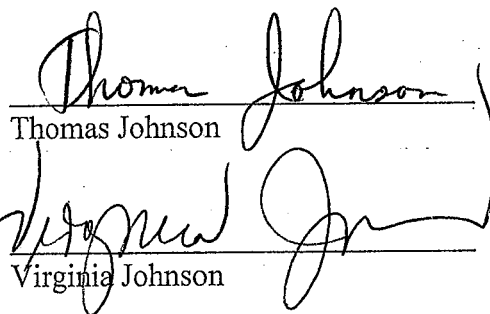 Thomas Johnson
Thomas Johnson
Virginia Johnson
Virginia Johnson